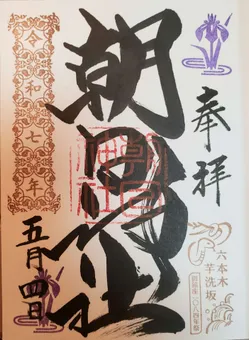 奉拝
六本木
芋洗坂
朝日神社
朝日神社
令和七年
五月四日